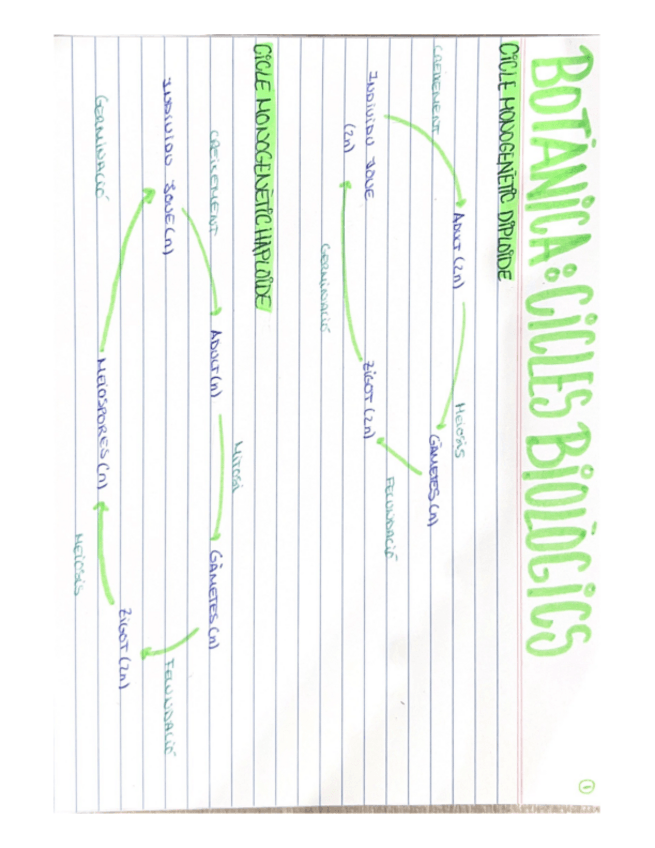 BOTÀNICA: CICLES BIOLÒGICS
1
CICLE MONOGENÈTIC DIPLOIDE
CREIXEMENT
ADULT (2n)
MEIOSIS
GÀMETES (n)
FECUNDACIÓ
ZIGOT (2n)
GERMINACIÓ
INDIVIDU JOVE
(2n)
CICLE MONOGENÈTIC HAPLOIDE
CREIXEMENT
ADULT (n)
MITOSI
GÀMETES (n)
FECUNDACIÓ
ZIGOT (2n)
MEIOSIS
MEIOSPORES (n)
GERMINACIÓ
INDIVIDU JOVE (n)